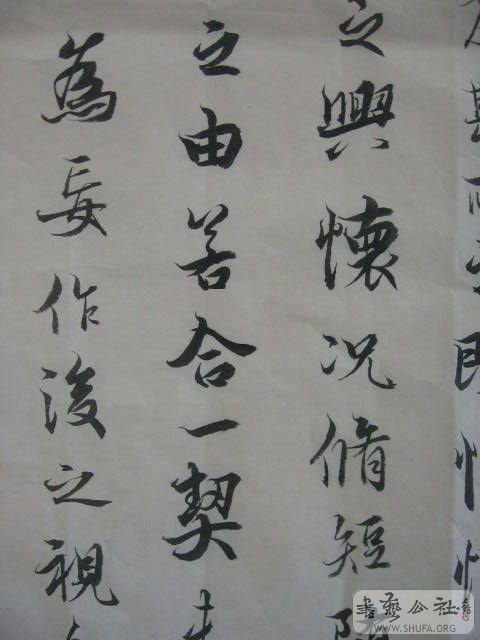 之興懷况脩短
之由若合一契未
為妄作後之視
書藝公社
WWW.SHUFA.ORG